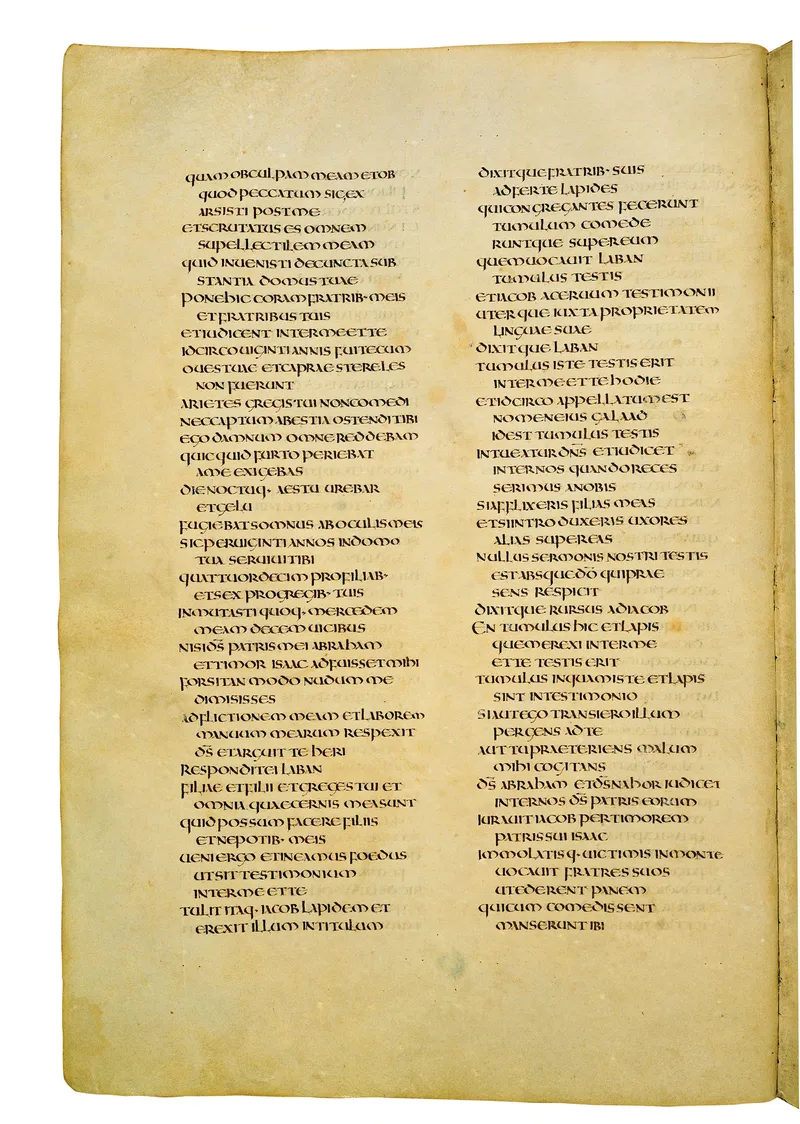 QUAM OB CULPAM MEAM ET OB
QUOD PECCATUM SIC EX
ARSISTI POST ME
ET SCRUTATUS ES OMNEM
SUPELLECTILEM MEAM
QUID INUENISTI DE CUNCTA SUB
STANTIA DOMUS TUAE
PONE HIC CORAM FRATRIB· MEIS
ET FRATRIBUS TUIS
ET IUDICENT INTER ME ET TE
IDCIRCO UIGINTI ANNIS FUI TECUM
OUES TUAE ET CAPRAE STERELES
NON FUERUNT
ARIETES GREGIS TUI NON COMEDI
NEC CAPTUM A BESTIA OSTENDI TIBI
EGO DAMNUM OMNE REDDEBAM
QUICQUID FURTO PERIEBAT
A ME EXIGEBAS
DIE NOCTUQ· AESTU UREBAR
ET GELU
FUGIEBAT SOMNUS AB OCULIS MEIS
SIC PER UIGINTI ANNOS IN DOMO
TUA SERUIUI TIBI
QUATTUORDECIM PRO FILIAB·
ET SEX PRO GREGIB· TUIS
INMUTASTI QUOQ· MERCEDEM
MEAM DECEM UICIBUS
NISI D̅S̅ PATRIS MEI ABRAHAM
ET TIMOR ISAAC ADFUISSET MIHI
FORSITAN MODO NUDUM ME
DIMISISSES
ADFLICTIONEM MEAM ET LABOREM
MANUUM MEARUM RESPEXIT
D̅S̅ ET ARGUIT TE HERI
RESPONDIT EI LABAN
FILIAE ET FILII ET GREGES TUI ET
OMNIA QUAE CERNIS MEA SUNT
QUID POSSUM FACERE FILIIS
ET NEPOTIB· MEIS
UENI ERGO ET INEAMUS FOEDUS
UT SIT TESTIMONIUM
INTER ME ET TE
TULIT ITAQ· IACOB LAPIDEM ET
EREXIT ILLUM IN TITULUM
DIXITQUE FRATRIB· SUIS
ADFERTE LAPIDES
QUI CONGREGANTES FECERUNT
TUMULUM COMEDE
RUNTQUE SUPER EUM
QUEM UOCAUIT LABAN
TUMULUS TESTIS
ET IACOB ACERUUM TESTIMONII
UTERQUE IUXTA PROPRIETATEM
LINGUAE SUAE
DIXITQUE LABAN
TUMULUS ISTE TESTIS ERIT
INTER ME ET TE HODIE
ET IDCIRCO APPELLATUM EST
NOMEN EIUS GALAAD
ID EST TUMULUS TESTIS
INTUEATUR D̅N̅S̅ ET IUDICET
INTER NOS QUANDO RECES
SERIMUS A NOBIS
SI AFFLIXERIS FILIAS MEAS
ET SI INTRODUXERIS UXORES
ALIAS SUPER EAS
NULLUS SERMONIS NOSTRI TESTIS
EST ABSQUE D̅O̅ QUI PRAE
SENS RESPICIT
DIXITQUE RURSUS AD IACOB
EN TUMULUS HIC ET LAPIS
QUEM EREXI INTER ME
ET TE TESTIS ERIT
TUMULUS INQUAM ISTE ET LAPIS
SINT IN TESTIMONIO
SI AUT EGO TRANSIERO ILLUM
PERGENS AD TE
AUT TU PRAETERIENS MALUM
MIHI COGITANS
D̅S̅ ABRAHAM ET D̅S̅ NAHOR IUDICET
INTER NOS D̅S̅ PATRIS EORUM
IURAUIT IACOB PER TIMOREM
PATRIS SUI ISAAC
IMMOLATISQ· UICTIMIS IN MONTE
UOCAUIT FRATRES SUOS
UT EDERENT PANEM
QUI CUM COMEDISSENT
MANSERUNT IBI